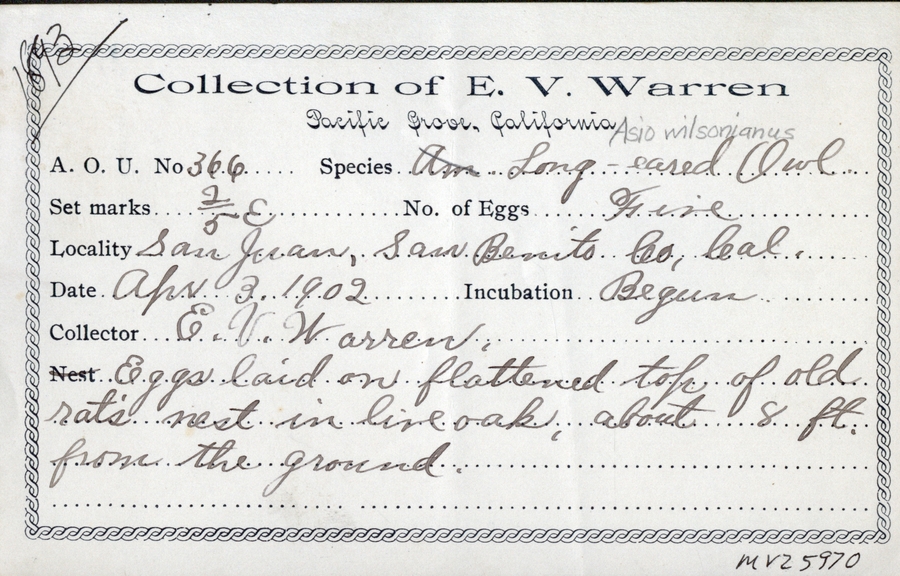 1893
Collection of E. V. Warren
Pacific Grove, California
Asio wilsonianus
A. O. U. No 366 Species Am Long-eared Owl
Set marks 2/5 E No. of Eggs Five
Locality San Juan, San Benito Co, Cal.
Date Apr 3. 1902 Incubation Begun
Collector E. V. Warren.
Nest Eggs laid on flattened top of old
rat's nest in live oak, about 8 ft.
from the ground.
MVZ 5970